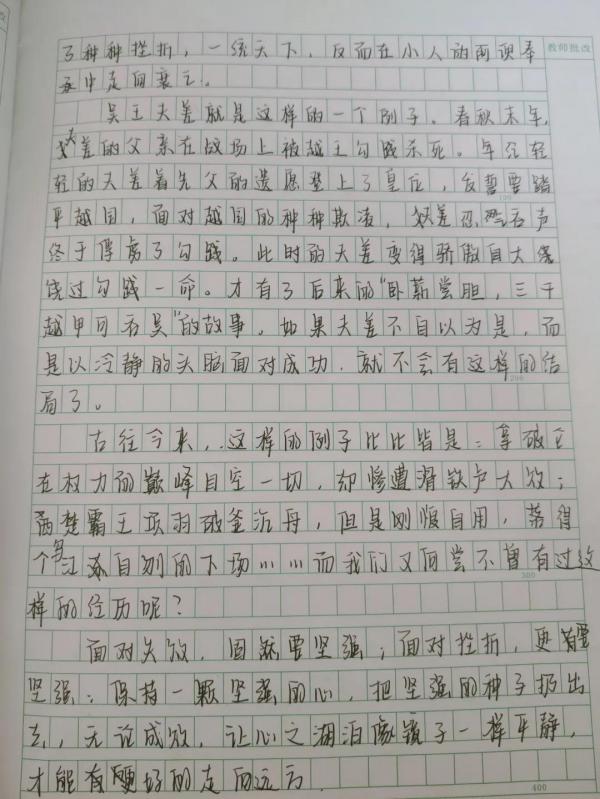 教师批改
了种种挫折，一统天下，反而在小人的两项奉
承中走向衰亡。
吴王夫差就是这样的一个例子。春秋末年，
夫差的父亲在战场上被越王勾践杀死。年纪轻
轻的夫差着先父的遗愿登上了皇位，发誓要踏
平越国，面对越国的种种欺凌，夫差忍气吞声
终于俘虏了勾践。此时的夫差变得骄傲自大
饶过勾践一命。才有了后来的"卧薪尝胆，三千
越甲可吞吴"的故事。如果夫差不自以为是，而
是以冷静的头脑面对成功，就不会有这样的结
局了。
古往今来，这样的例子比比皆是：拿破仑
在权力的巅峰目空一切，却惨遭滑铁卢大败；
西楚霸王项羽破釜沉舟，但是刚愎自用，落得
个乌江自刎的下场……而我们又何尝不曾有过这
样的经历呢？
面对失败，固然要坚强；面对挫折，更需要
坚强；保持一颗坚强的心，把坚强的种子扔出
去，无论成败，让心之湖泊像镜子一样平静，
才能有更好的走向远方
100
200
300
400